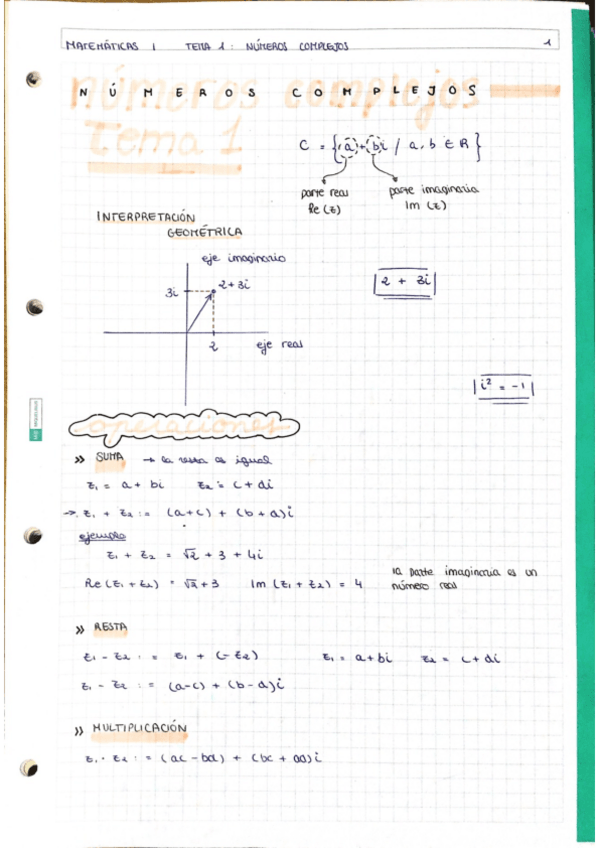 MATEMÁTICAS I TEMA 1: NÚMEROS COMPLEJOS 1
números complejos
NÚMEROS COMPLEJOS
Tema 1
C = {a + bi / a, b ∈ R}
parte real parte imaginaria
Re(z) Im(z)
INTERPRETACIÓN
GEOMÉTRICA
eje imaginario
3i 2+3i
2 eje real
2 + 3i
i² = -1
operaciones
» SUMA → la resta es igual
z₁ = a + bi z₂ = c + di
→ z₁ + z₂ := (a+c) + (b+d)i
ejemplo
z₁ + z₂ = √2 + 3 + 4i
Re(z₁+z₂) = √2+3 Im(z₁+z₂) = 4
la parte imaginaria es un
número real
» RESTA
z₁ - z₂ := z₁ + (-z₂) z₁ = a+bi z₂ = c+di
z₁ - z₂ := (a-c) + (b-d)i
» MULTIPLICACIÓN
z₁ · z₂ := (ac - bd) + (bc + ad)i